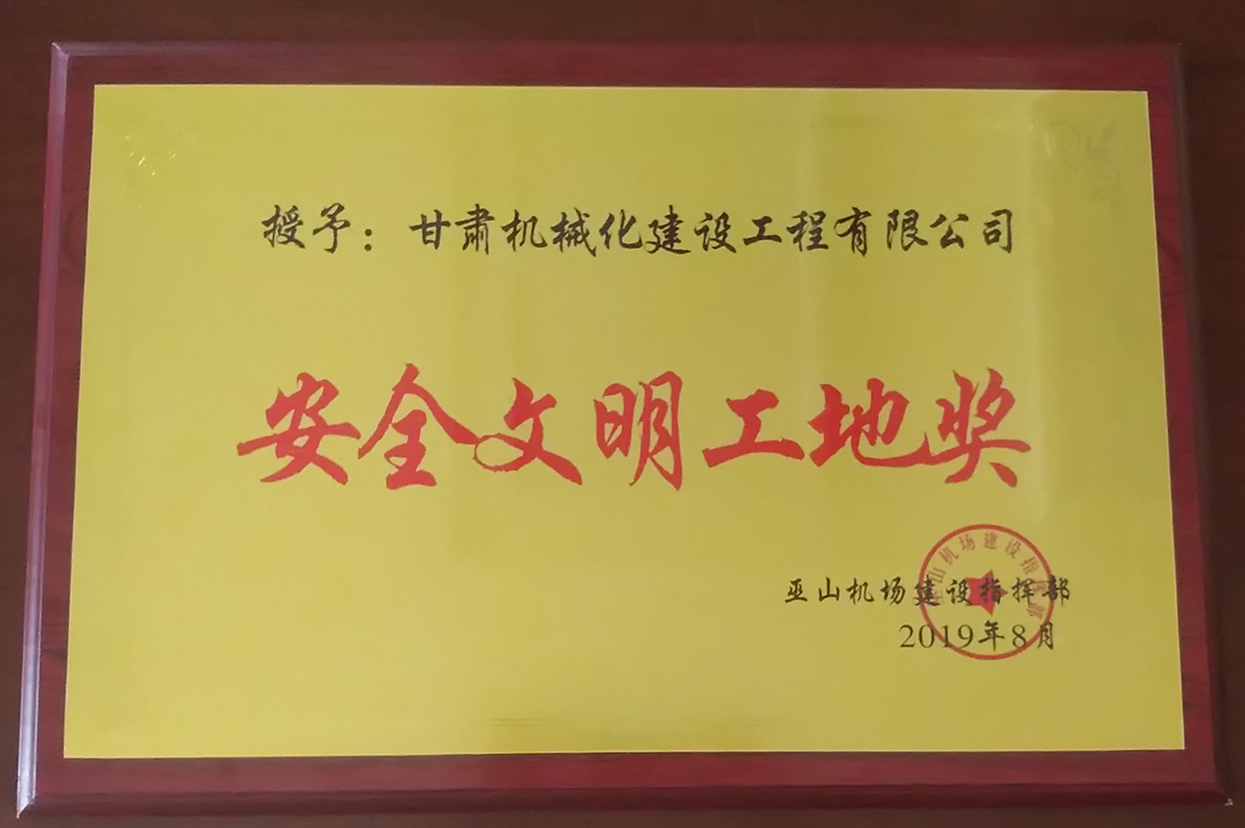 授予：甘肃机械化建设工程有限公司
安全文明工地奖
巫山机场建设指挥部
2019年8月
山机场建设指